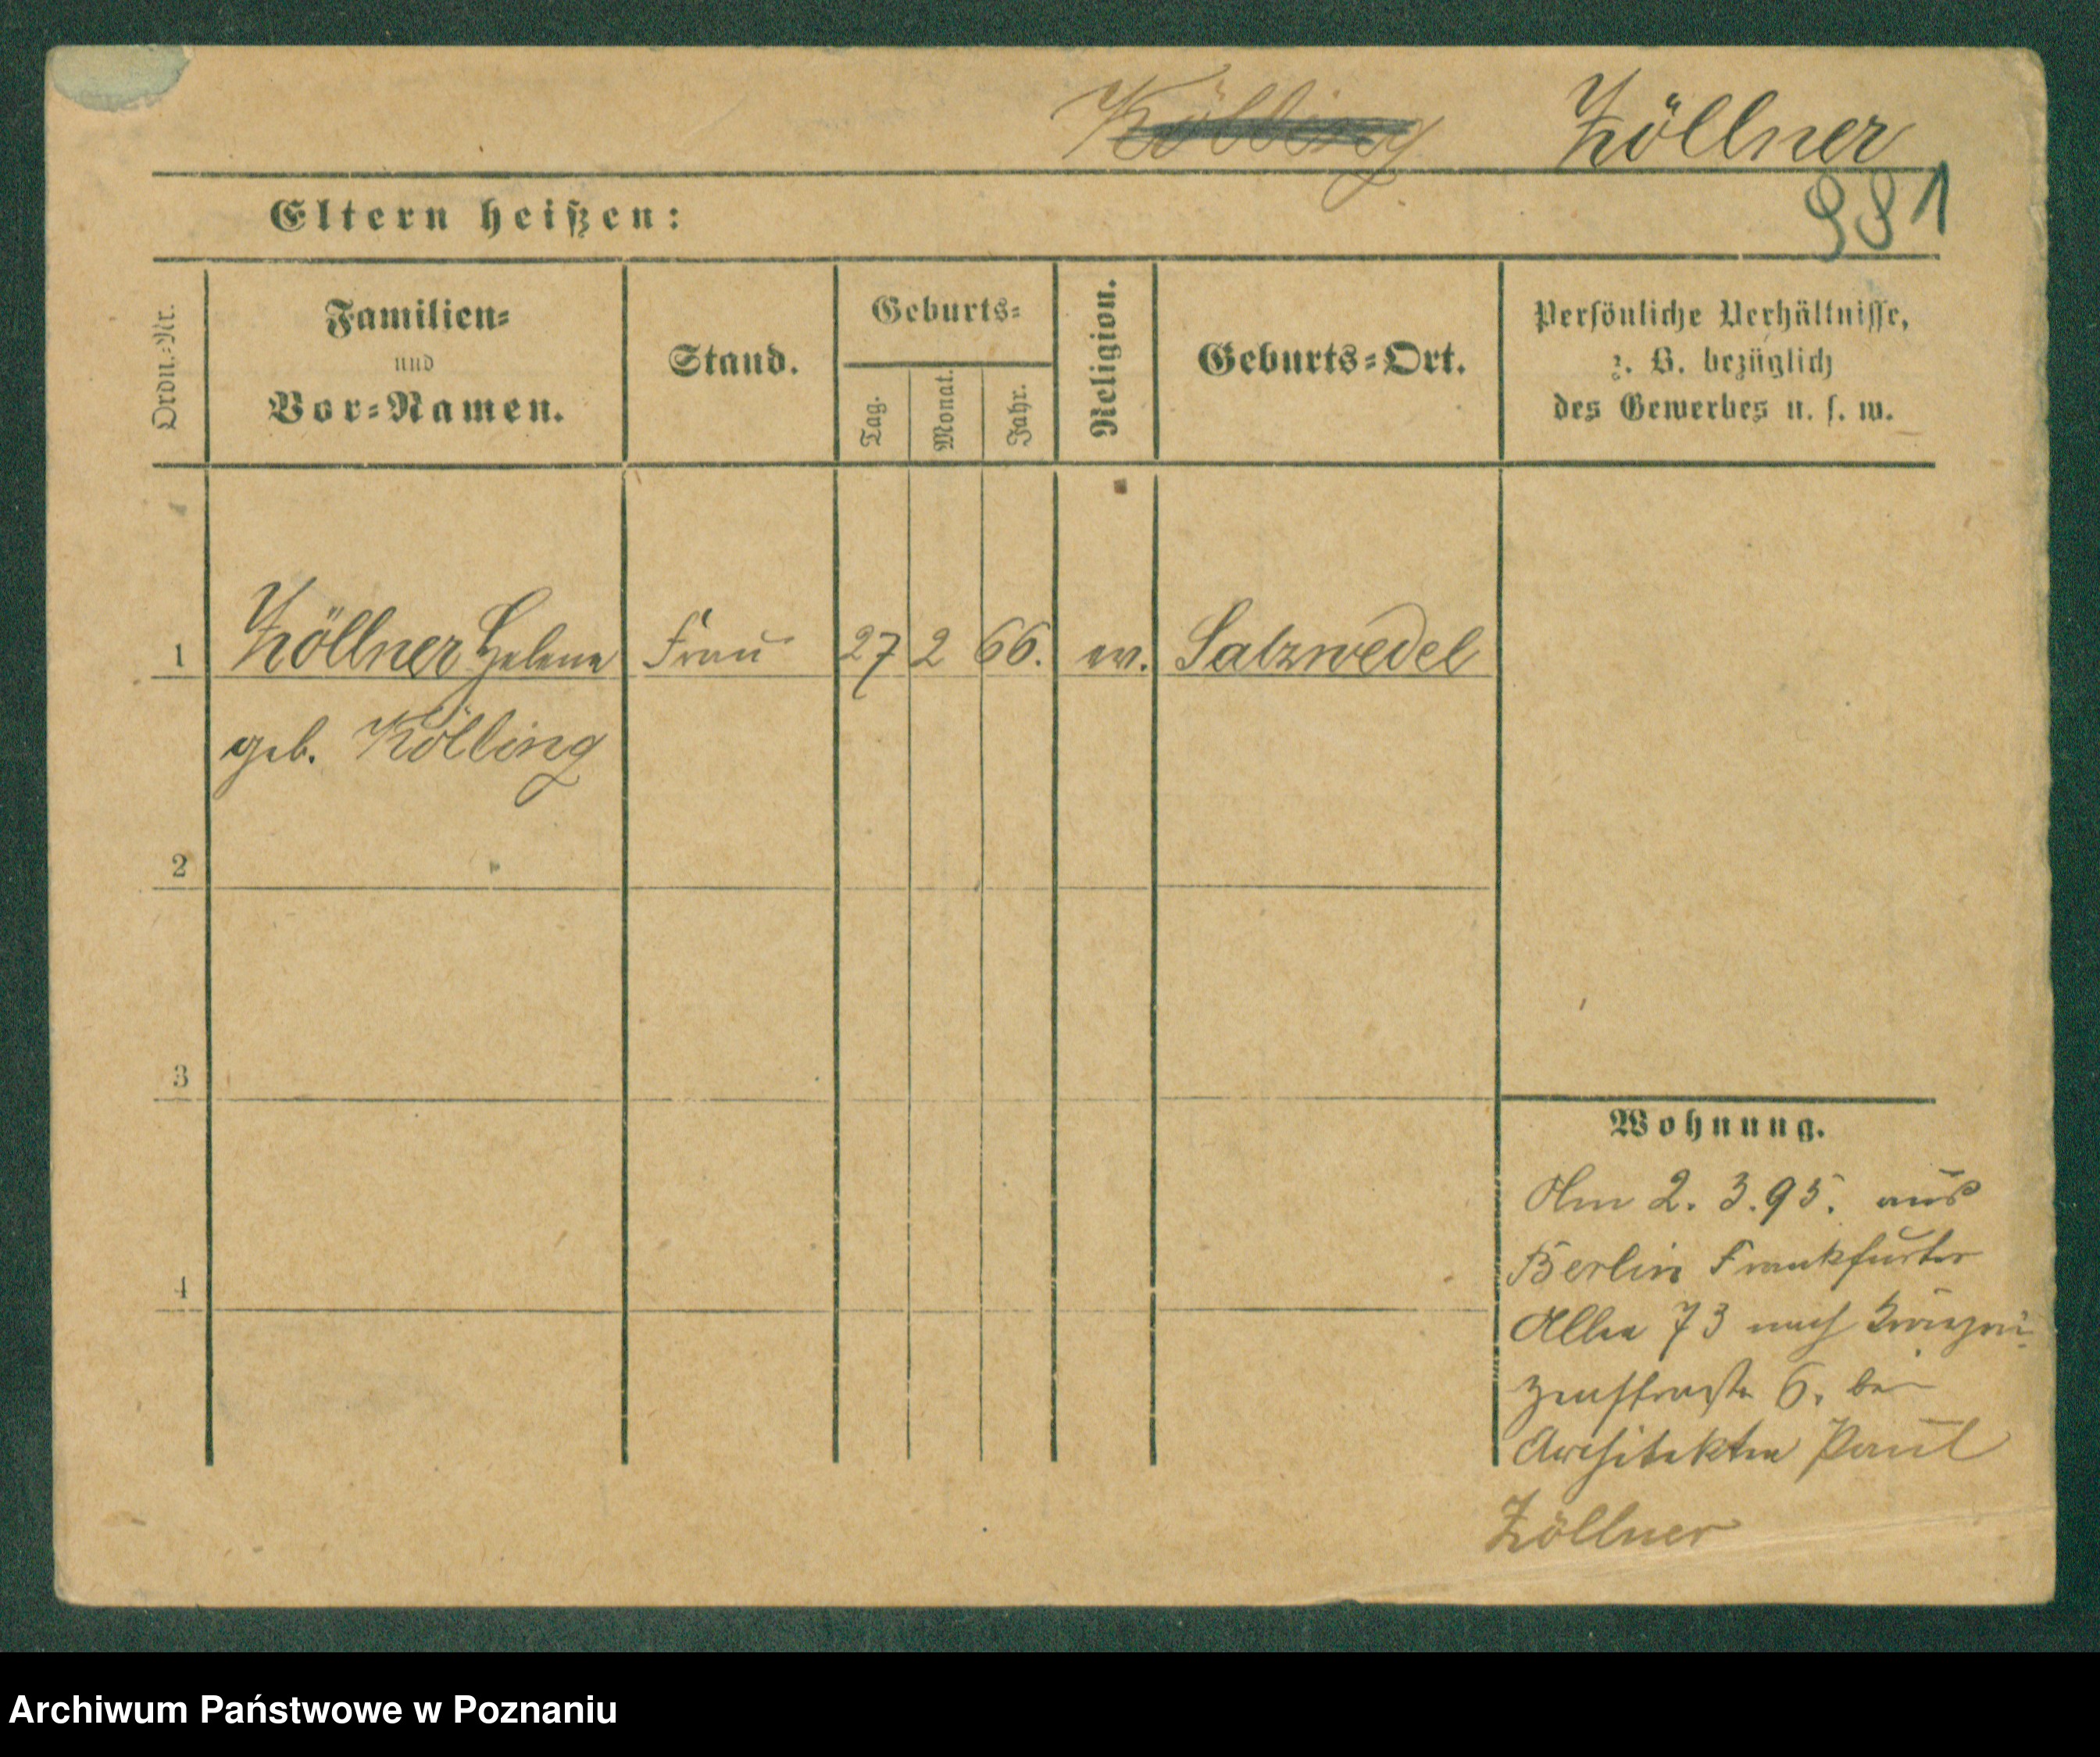 Kölling Zöllner
981
Eltern heißen:
Ordn.-Nr.
Familien-
und
Vor-Namen.
Stand.
Geburts-
Tag.
Monat.
Jahr.
Religion.
Geburts-Ort.
Persönliche Verhältnisse,
z. B. bezüglich
des Gewerbes u. s. w.
1 Zöllner Helene Frau 27 2 66. ev. Salzwedel
geb. Kölling
2
3
4
Wohnung.
Am 2. 3. 95. aus
Berlin Frankfurter
Allee 73 nach
6. bei
Architekten Paul
Zöllner
Archiwum Państwowe w Poznaniu